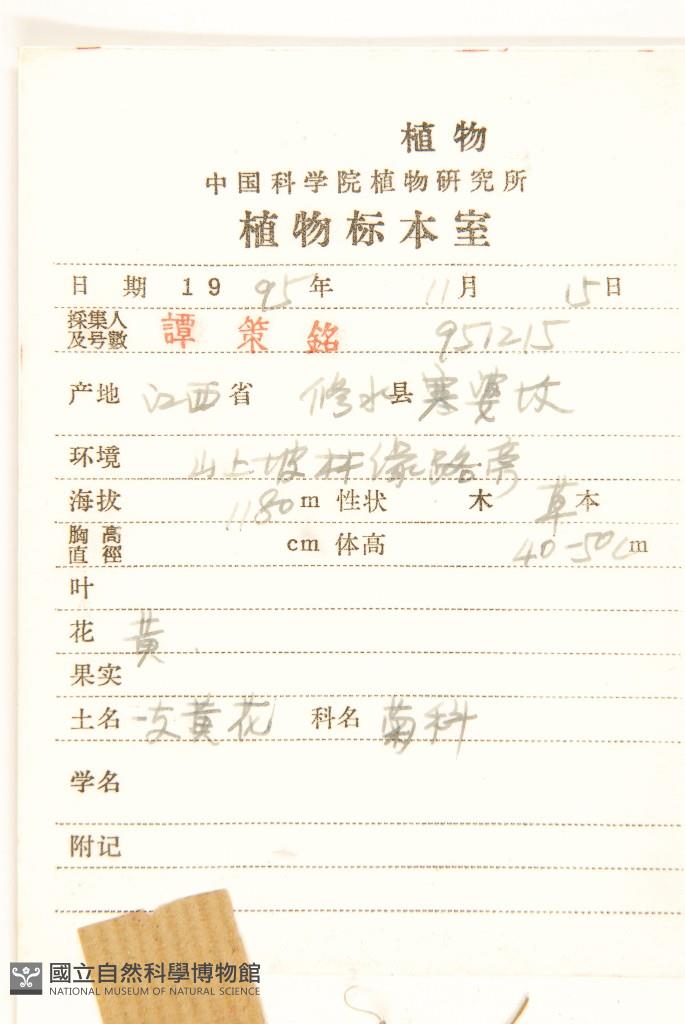 植物
中国科学院植物研究所
植物标本室
日 期 19 95 年 11 月 15 日
採集人 及号數 譚策銘 951215
产地 江西 省 修水 县 寒婆坟
环境 山上坡林缘路旁
海拔 1180 m 性状 木 草 本
胸高 直徑 cm 体高 40-50c m
叶
花 黄.
果实
土名 一支黄花 科名 菊科
学名
附记
國立自然科學博物館
NATIONAL MUSEUM OF NATURAL SCIENCE